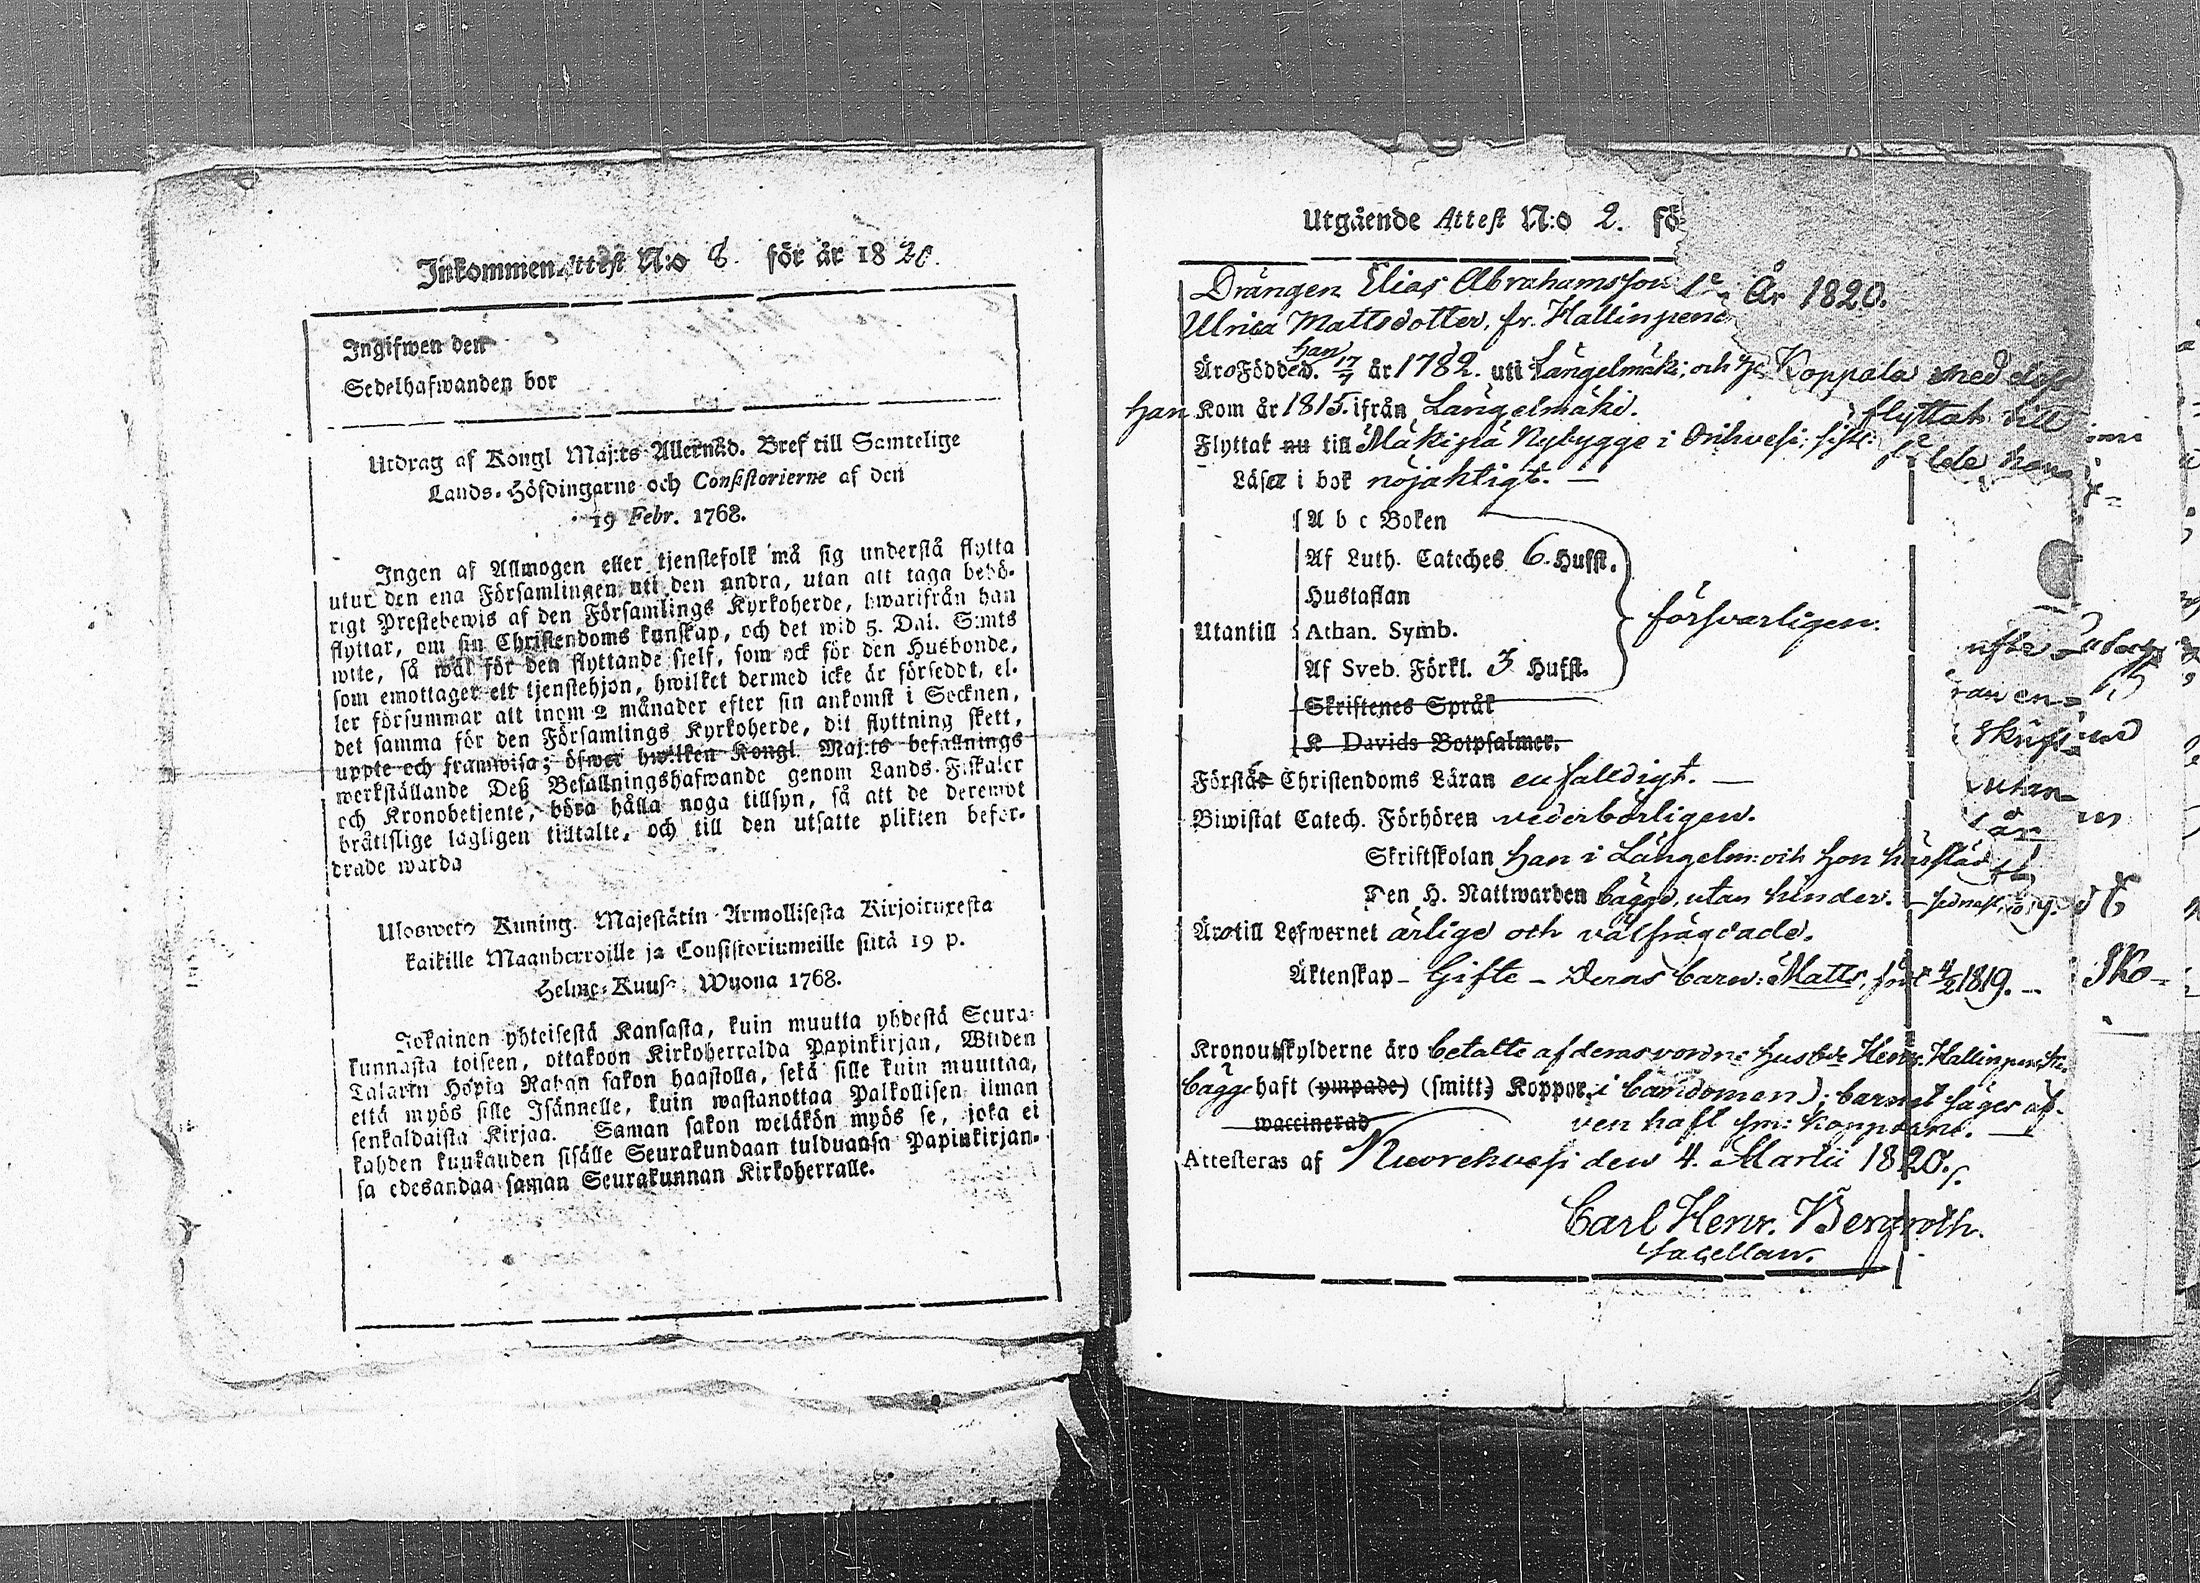 Inkommen Attest N:o 8. för år 1820.
Ingifwen den
Sedelhafwanden bor
Utdrag af Kongl Maj:ts Allernåd. Bref till Samtelige
Lands-Höfdingarne och Consistorierne af den
19 Febr. 1768.
Ingen af Allmogen eller tjenstefolk må sig understå flytta
utur den ena Församlingen uti den andra, utan att taga behö-
rigt Prestebewis af den Församlings Kyrkoherde, hwarifrån han
flyttar, om sin Christendoms kunskap, och det wid 5. Dal. S:mts
wite, så wäl för den flyttande sjelf, som ock för den Husbonde,
som emottager ett tjenstehjon, hwilket dermed icke är försedt, el-
ler försummar att inom 2 månader efter sin ankomst i Socknen,
det samma för den Församlings Kyrkoherde, dit flyttning skett,
uppte och framwisa; öfwer hwilken Kongl Maj:ts befallnings
werkställande Deß Befallningshafwande genom Lands-Fiskaler
och Kronobetjente, böra hålla noga tillsyn, så att de deremot
bråttslige lagligen tilltalte, och till den utsatte plikten befor-
drade warda
Ulosweto Kuning. Majestätin Armollisesta Kirjoituxesta
kaikille Maanherroille ja Consistoriumeille siitä 19 p.
Helme-Kuus. Wuona 1768.
Jokainen yhteisestä Kansasta, kuin muutta yhdestä Seura-
kunnasta toiseen, ottakoon Kirkoherralda Papinkirjan, Wiiden
Talarin Hopia Rahan sakon haastolla, sekä sille kuin muuttaa,
että myös sille Isännelle, kuin wastanottaa Palkollisen ilman
senkaldaista Kirjaa. Saman sakon weläkön myös se, joka ei
kahden kuukauden sisälle Seurakundaan tulduansa Papinkirjan-
sa edesandaa saman Seurakunnan Kirkoherralle.
Utgående Attest N:o 2. fö
Drängen Elias Abrahamsson År 1820.
Ulrica Mattsdotter, fr. Hallinpen
han
Äro Född ed. 17/7 år 1782. uti Längelmäki; och Koppala med
han Kom år 1815. ifrån Längelmäki. flyttat till
Flyttat nu till Mäkipä Nybygge i Orihvesi;
Läser i bok nöjaktigt. —
A b c Boken
Af Luth. Cateches 6. Hufst.
Hustaflan
Utantill Athan. Symb. försvarligen.
Af Sveb. Förkl. 3 Hufst.
Skriftenes Språk
K Davids Botpsalmer.
Förstår Christendoms Läran enfalldigt. —
Biwistat Catech. Förhören vederbörligen.
Skriftskolan han i Längelm: och hon härstäd
Den H. Nattwarden bägge, utan hinder.
Äro till Lefwernet ärlige och välfrägdade.
Äktenskap - Gifte - Deras barn: Matts, född 4/2 1819. —
Kronoutskylderne äro betalte af deras vordne husb:de Henr. Hallinpen
bägge haft (ympade) (smitt) Koppor i barndomen); barnet säges äf-
waccinerad ven haft sm: kopporne. —
Attesteras af Kuorehvesi den 4. Martii 1820.
Carl Henr. Bergroth.
Sacellan.